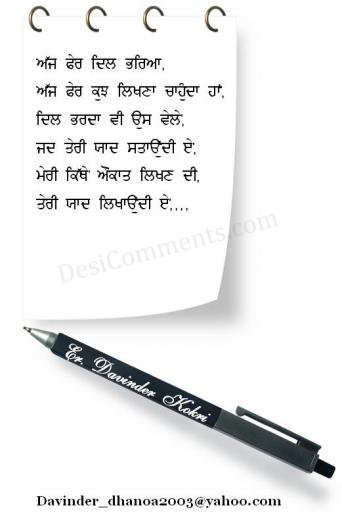 ਅੱਜ ਫੇਰ ਦਿਲ ਭਰਿਆ,
ਅੱਜ ਫੇਰ ਕੁਝ ਲਿਖਣਾ ਚਾਹੁੰਦਾ ਹਾਂ,
ਦਿਲ ਭਰਦਾ ਵੀ ਉਸ ਵੇਲੇ,
ਜਦ ਤੇਰੀ ਯਾਦ ਸਤਾਉਂਦੀ ਏ,
ਮੇਰੀ ਕਿੱਥੇ ਔਕਾਤ ਲਿਖਣ ਦੀ,
ਤੇਰੀ ਯਾਦ ਲਿਖਾਉਂਦੀ ਏ,,,,
DesiComments.com
Er. Davinder Kokri
Davinder_dhanoa2003@yahoo.com